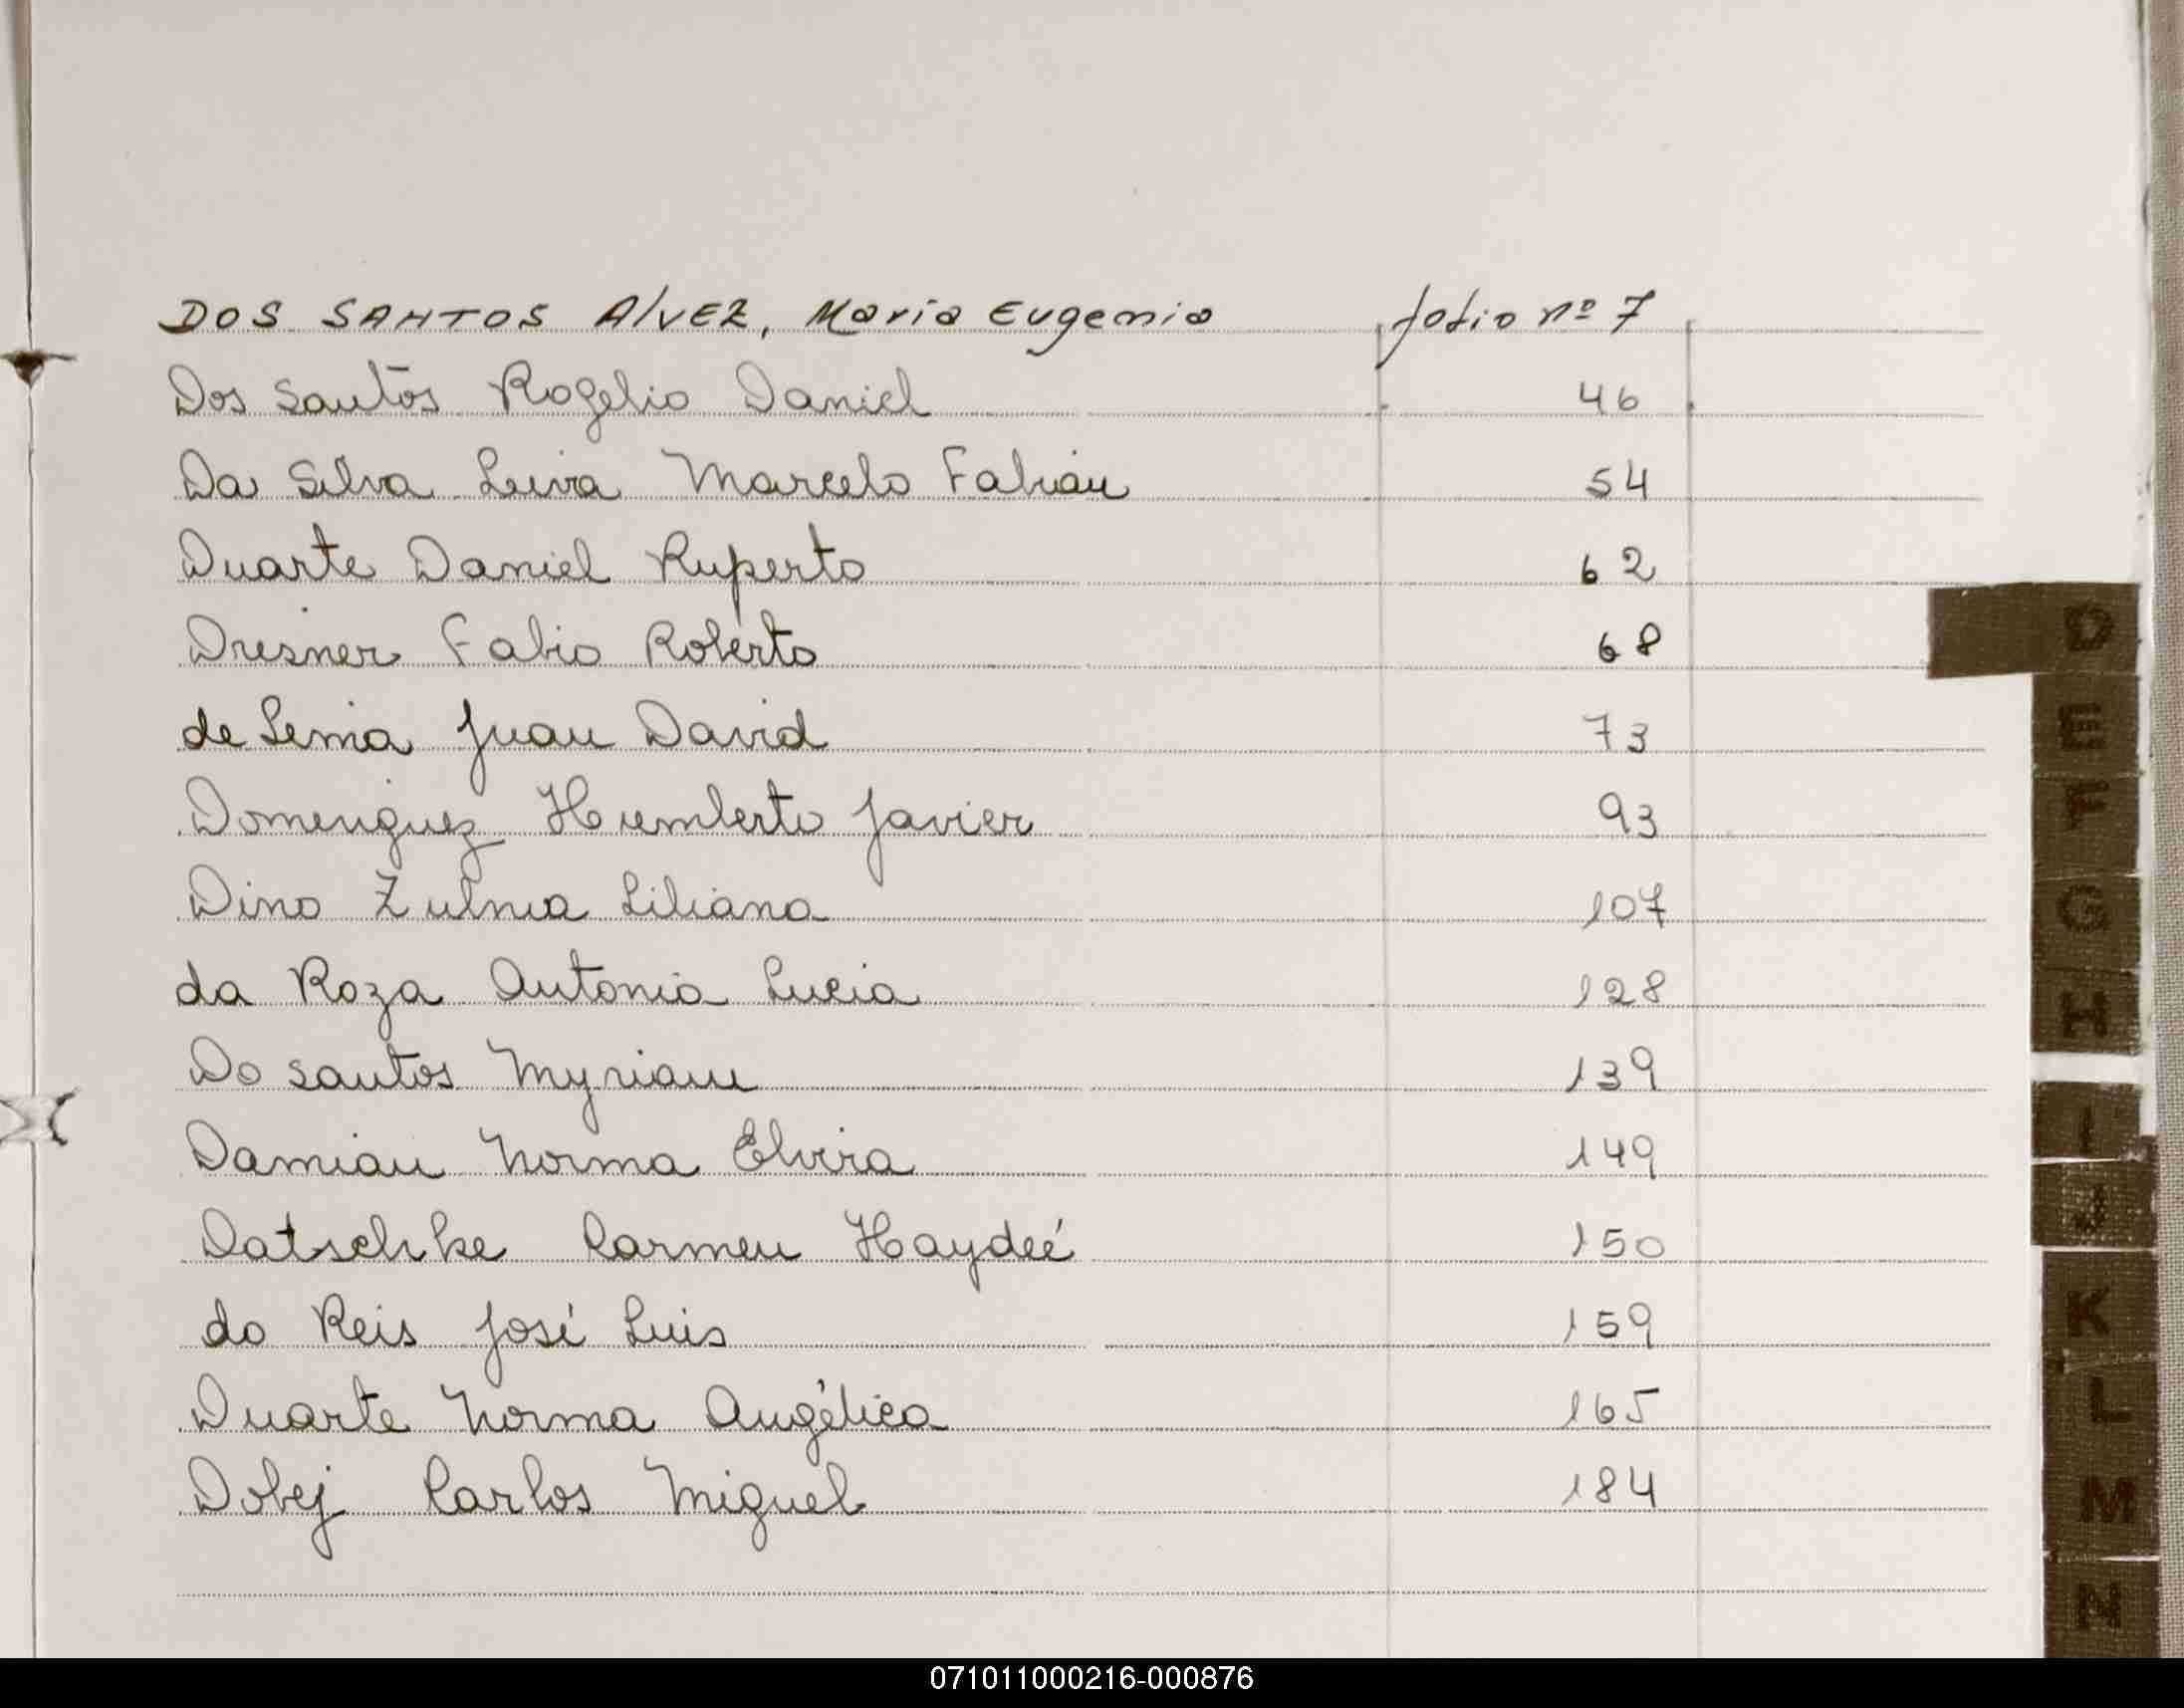 DOS SANTOS AlVEZ, Maria Eugenia folio nº 7
Dos Santos Rogelio Daniel 46
Da Silva Leiva Marcelo Fabián 54
Duarte Daniel Ruperto 62
Dresner Fabio Roberto 68
D
de Lema Juan David 73
E
Domenguez Humberto Javier 93
F
Dino Zulma Liliana 107
G
da Roza Antonia Lucia 128
H
Do santos Myriam 139
I
Damian Norma Elvira 149
J
Datschke Carmen Haydeé 150
do Reis José Luis 159
K
Duarte Norma Angélica 165
L
Dobej Carlos Miguel 184
M
N
071011000216-000876